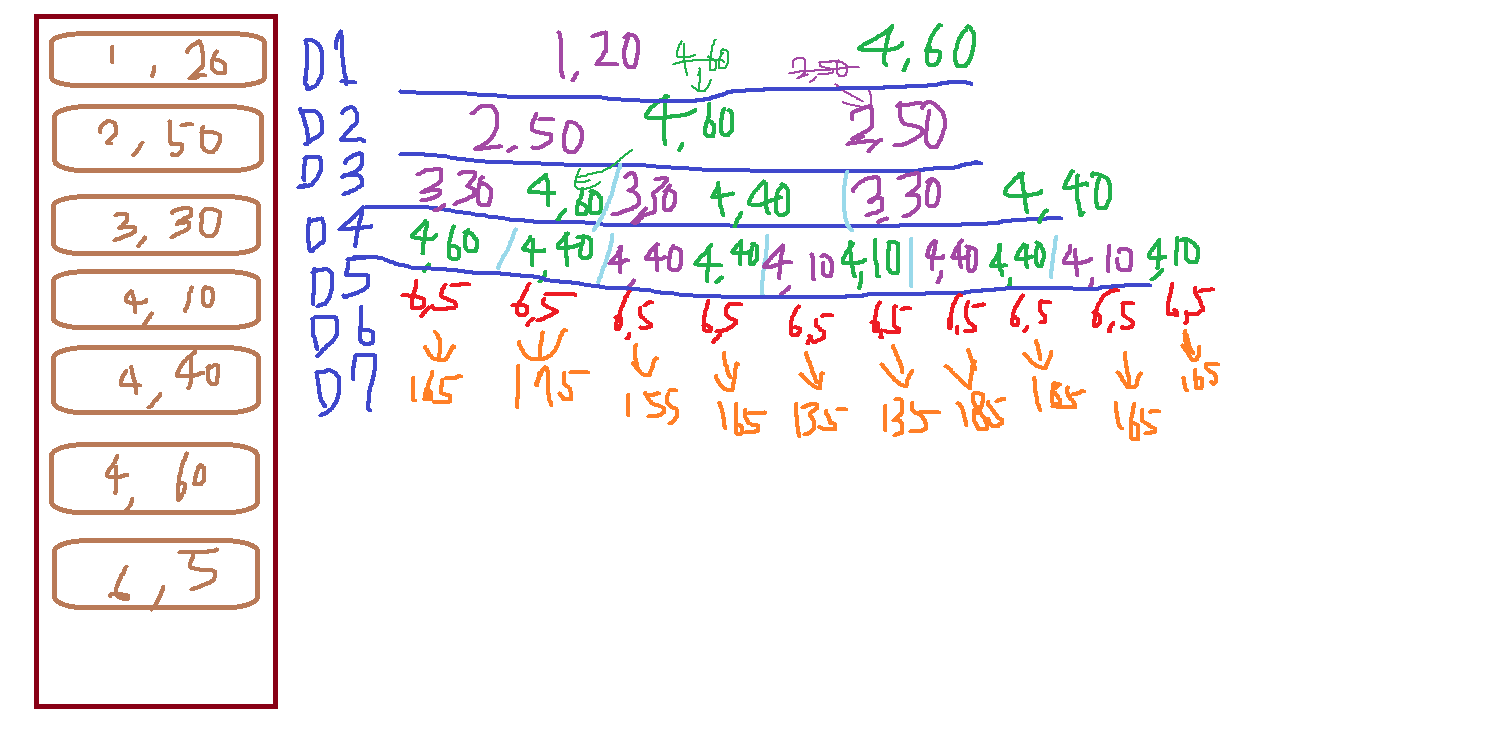 1, 20
2, 50
3, 30
4, 10
4, 40
4, 60
6, 5
D1 1,20 4,60 2,50 4,60
D2 2,50 4,60 2,50
D3 3,30 4,60 3,30 4,40 3,30 4,40
D4 4,60 4,40 4,40 4,40 4,10 4,10 4,40 4,40 4,10 4,10
D5 6,5 6,5 6,5 6,5 6,5 6,5 6,5 6,5 6,5 6,5
D6
D7 165 175 155 165 135 135 185 165 165